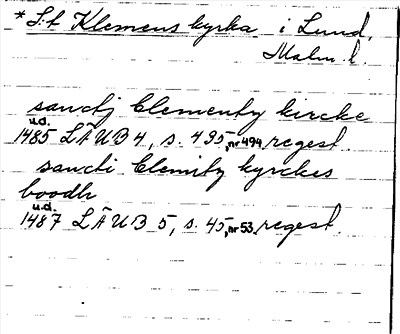 * S:t Klemens kyrka i Lund,
Malm. l.
sanctj Clementy kircke
u.d.
1485 LÄUB 4, s. 435, nr 494, regest.
sancti Clemity kyrckes
boodh
u.d.
1487 LÄUB 5, s. 45, nr 53, regest.